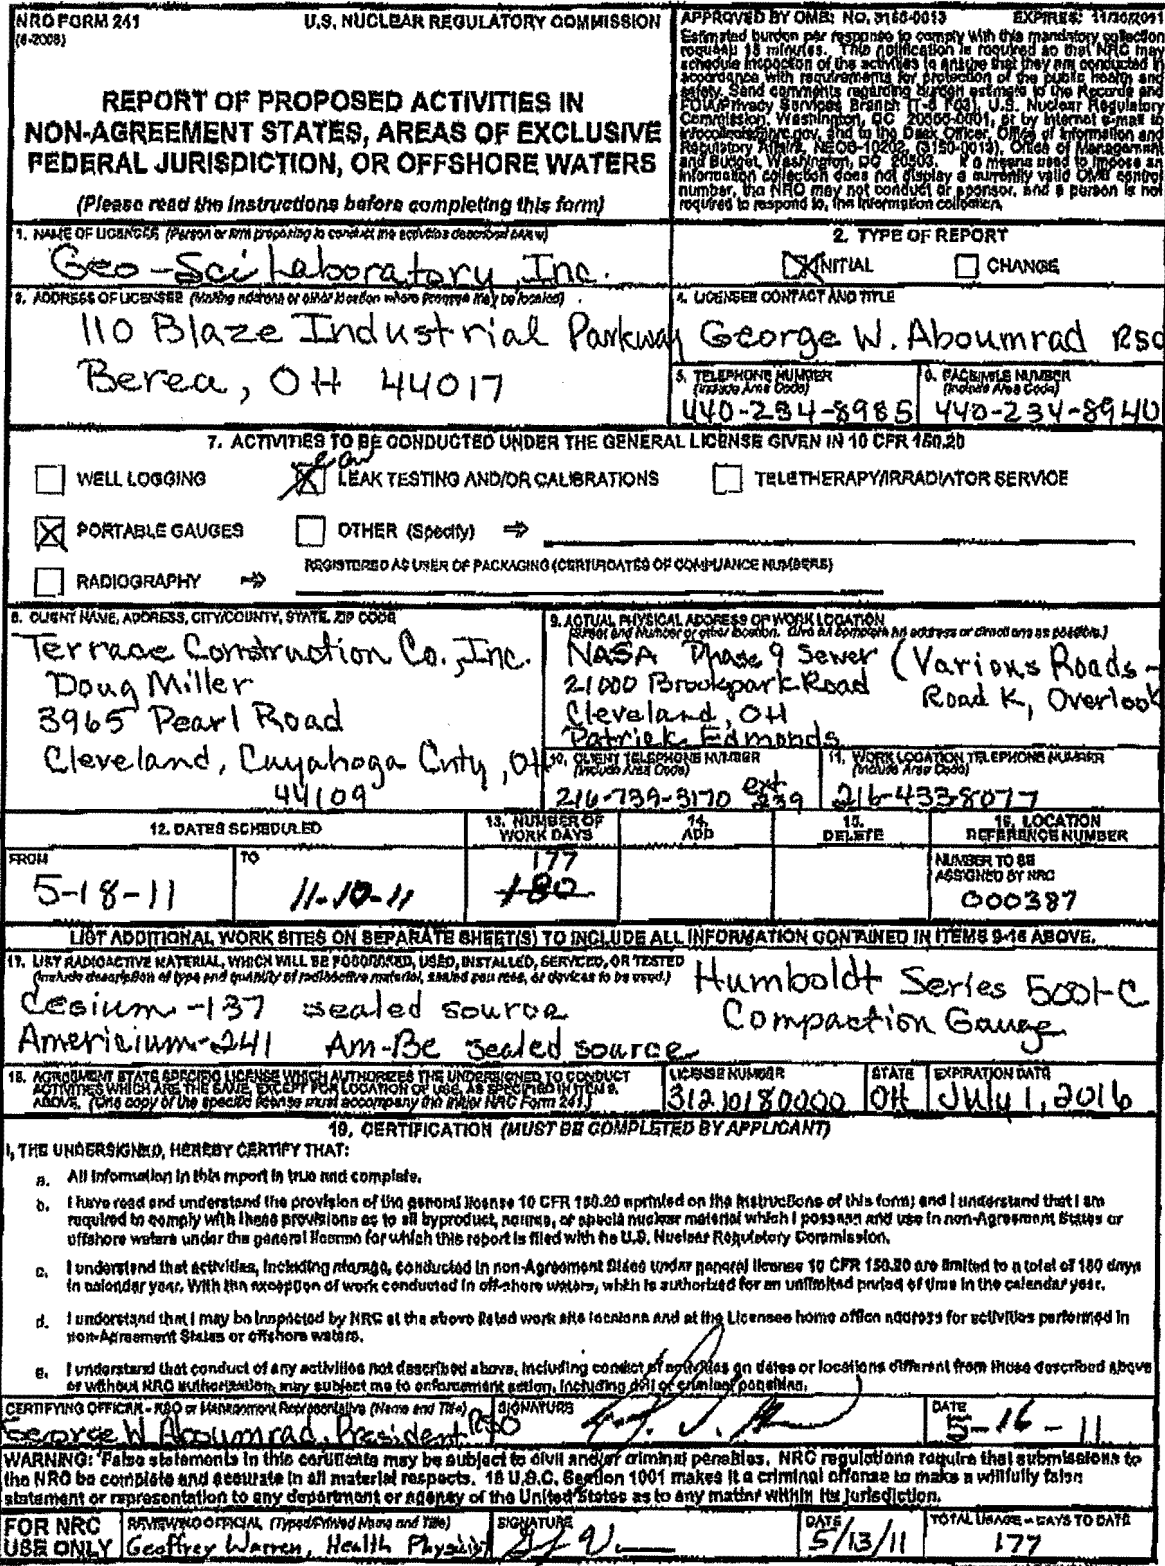 NRC FORM 241
(6-2008)
U.S. NUCLEAR REGULATORY COMMISSION
REPORT OF PROPOSED ACTIVITIES IN
NON-AGREEMENT STATES, AREAS OF EXCLUSIVE
FEDERAL JURISDICTION, OR OFFSHORE WATERS
(Please read the instructions before completing this form)
APPROVED BY OMB: NO. 3150-0013 EXPIRES: 11/30/2011
Estimated burden per response to comply with this mandatory collection
request: 15 minutes. This notification is required so that NRC may
schedule inspection of the activities to ensure that they are conducted in
accordance with requirements for protection of the public health and
safety. Send comments regarding burden estimate to the Records and
FOIA/Privacy Services Branch (T-5 F53), U.S. Nuclear Regulatory
Commission, Washington, DC 20555-0001, or by internet e-mail to
infocollects@nrc.gov, and to the Desk Officer, Office of Information and
Regulatory Affairs, NEOB-10202, (3150-0013), Office of Management
and Budget, Washington, DC 20503. If a means used to impose an
information collection does not display a currently valid OMB control
number, the NRC may not conduct or sponsor, and a person is not
required to respond to, the information collection.
1. NAME OF LICENSEE (Person or firm proposing to conduct the activities described below)
Geo-Sci Laboratory, Inc.
2. TYPE OF REPORT
INITIAL CHANGE
3. ADDRESS OF LICENSEE (Mailing address or other location where licensee may be located)
110 Blaze Industrial Parkway
Berea, OH 44017
4. LICENSEE CONTACT AND TITLE
George W. Aboumrad RSO
5. TELEPHONE NUMBER
(Include Area Code)
440-234-8985
6. FACSIMILE NUMBER
(Include Area Code)
440-234-8940
7. ACTIVITIES TO BE CONDUCTED UNDER THE GENERAL LICENSE GIVEN IN 10 CFR 150.20
WELL LOGGING
LEAK TESTING AND/OR CALIBRATIONS
TELETHERAPY/IRRADIATOR SERVICE
PORTABLE GAUGES
OTHER (Specify)
RADIOGRAPHY
REGISTERED AS USER OF PACKAGING (CERTIFICATES OF COMPLIANCE NUMBERS)
8. CLIENT NAME, ADDRESS, CITY/COUNTY, STATE, ZIP CODE
Terrace Construction Co., Inc.
Doug Miller
3965 Pearl Road
Cleveland, Cuyahoga Cnty, OH
44109
9. ACTUAL PHYSICAL ADDRESS OF WORK LOCATION
(Street and Number or other location. Give as complete an address or directions as possible.)
NASA Phase 9 Sewer (Various Roads -
21000 Brookpark Road Road K, Overlook
Cleveland, OH
Patrick Edmonds
10. CLIENT TELEPHONE NUMBER
(Include Area Code)
216-739-3170 ext 239
11. WORK LOCATION TELEPHONE NUMBER
(Include Area Code)
216-433-8077
12. DATES SCHEDULED
13. NUMBER OF
WORK DAYS
14.
ADD
15.
DELETE
16. LOCATION
REFERENCE NUMBER
FROM
5-18-11
TO
11-10-11
177
180
NUMBER TO BE
ASSIGNED BY NRC
000387
LIST ADDITIONAL WORK SITES ON SEPARATE SHEET(S) TO INCLUDE ALL INFORMATION CONTAINED IN ITEMS 9-16 ABOVE.
17. LIST RADIOACTIVE MATERIAL, WHICH WILL BE POSSESSED, USED, INSTALLED, SERVICED, OR TESTED
(Include description of type and quantity of radioactive material, sealed sources, or devices to be used.)
Cesium-137 sealed source
Americium-241 Am-Be sealed source
Humboldt Series 5001-C
Compaction Gauge
18. AGREEMENT STATE SPECIFIC LICENSE WHICH AUTHORIZES THE UNDERSIGNED TO CONDUCT
ACTIVITIES WHICH ARE THE SAME, EXCEPT FOR LOCATION OF USE, AS SPECIFIED IN ITEM 9.
ABOVE. (One copy of the specific license must accompany the initial NRC Form 241.)
LICENSE NUMBER
31210180000
STATE
OH
EXPIRATION DATE
July 1, 2016
19. CERTIFICATION (MUST BE COMPLETED BY APPLICANT)
I, THE UNDERSIGNED, HEREBY CERTIFY THAT:
a. All information in this report is true and complete.
b. I have read and understand the provision of the general license 10 CFR 150.20 reprinted on the instructions of this form; and I understand that I am
required to comply with these provisions as to all byproduct, source, or special nuclear material which I possess and use in non-Agreement States or
offshore waters under the general license for which this report is filed with the U.S. Nuclear Regulatory Commission.
c. I understand that activities, including storage, conducted in non-Agreement States under general license 10 CFR 150.20 are limited to a total of 180 days
in calendar year. With the exception of work conducted in off-shore waters, which is authorized for an unlimited period of time in the calendar year.
d. I understand that I may be inspected by NRC at the above listed work site locations and at the Licensee home office address for activities performed in
non-Agreement States or offshore waters.
e. I understand that conduct of any activities not described above, including conduct of activities on dates or locations different from those described above
or without NRC authorization, may subject me to enforcement action, including civil or criminal penalties.
CERTIFYING OFFICER - RSO or Management Representative (Name and Title)
George W Aboumrad, President RSO
SIGNATURE
DATE
5-16-11
WARNING: False statements in this certificate may be subject to civil and/or criminal penalties. NRC regulations require that submissions to
the NRC be complete and accurate in all material respects. 18 U.S.C. Section 1001 makes it a criminal offense to make a willfully false
statement or representation to any department or agency of the United States as to any matter within its jurisdiction.
FOR NRC
USE ONLY
REVIEWING OFFICIAL (Typed/Printed Name and Title)
Geoffrey Warren, Health Physicist
SIGNATURE
DATE
5/13/11
TOTAL USAGE - DAYS TO DATE
177